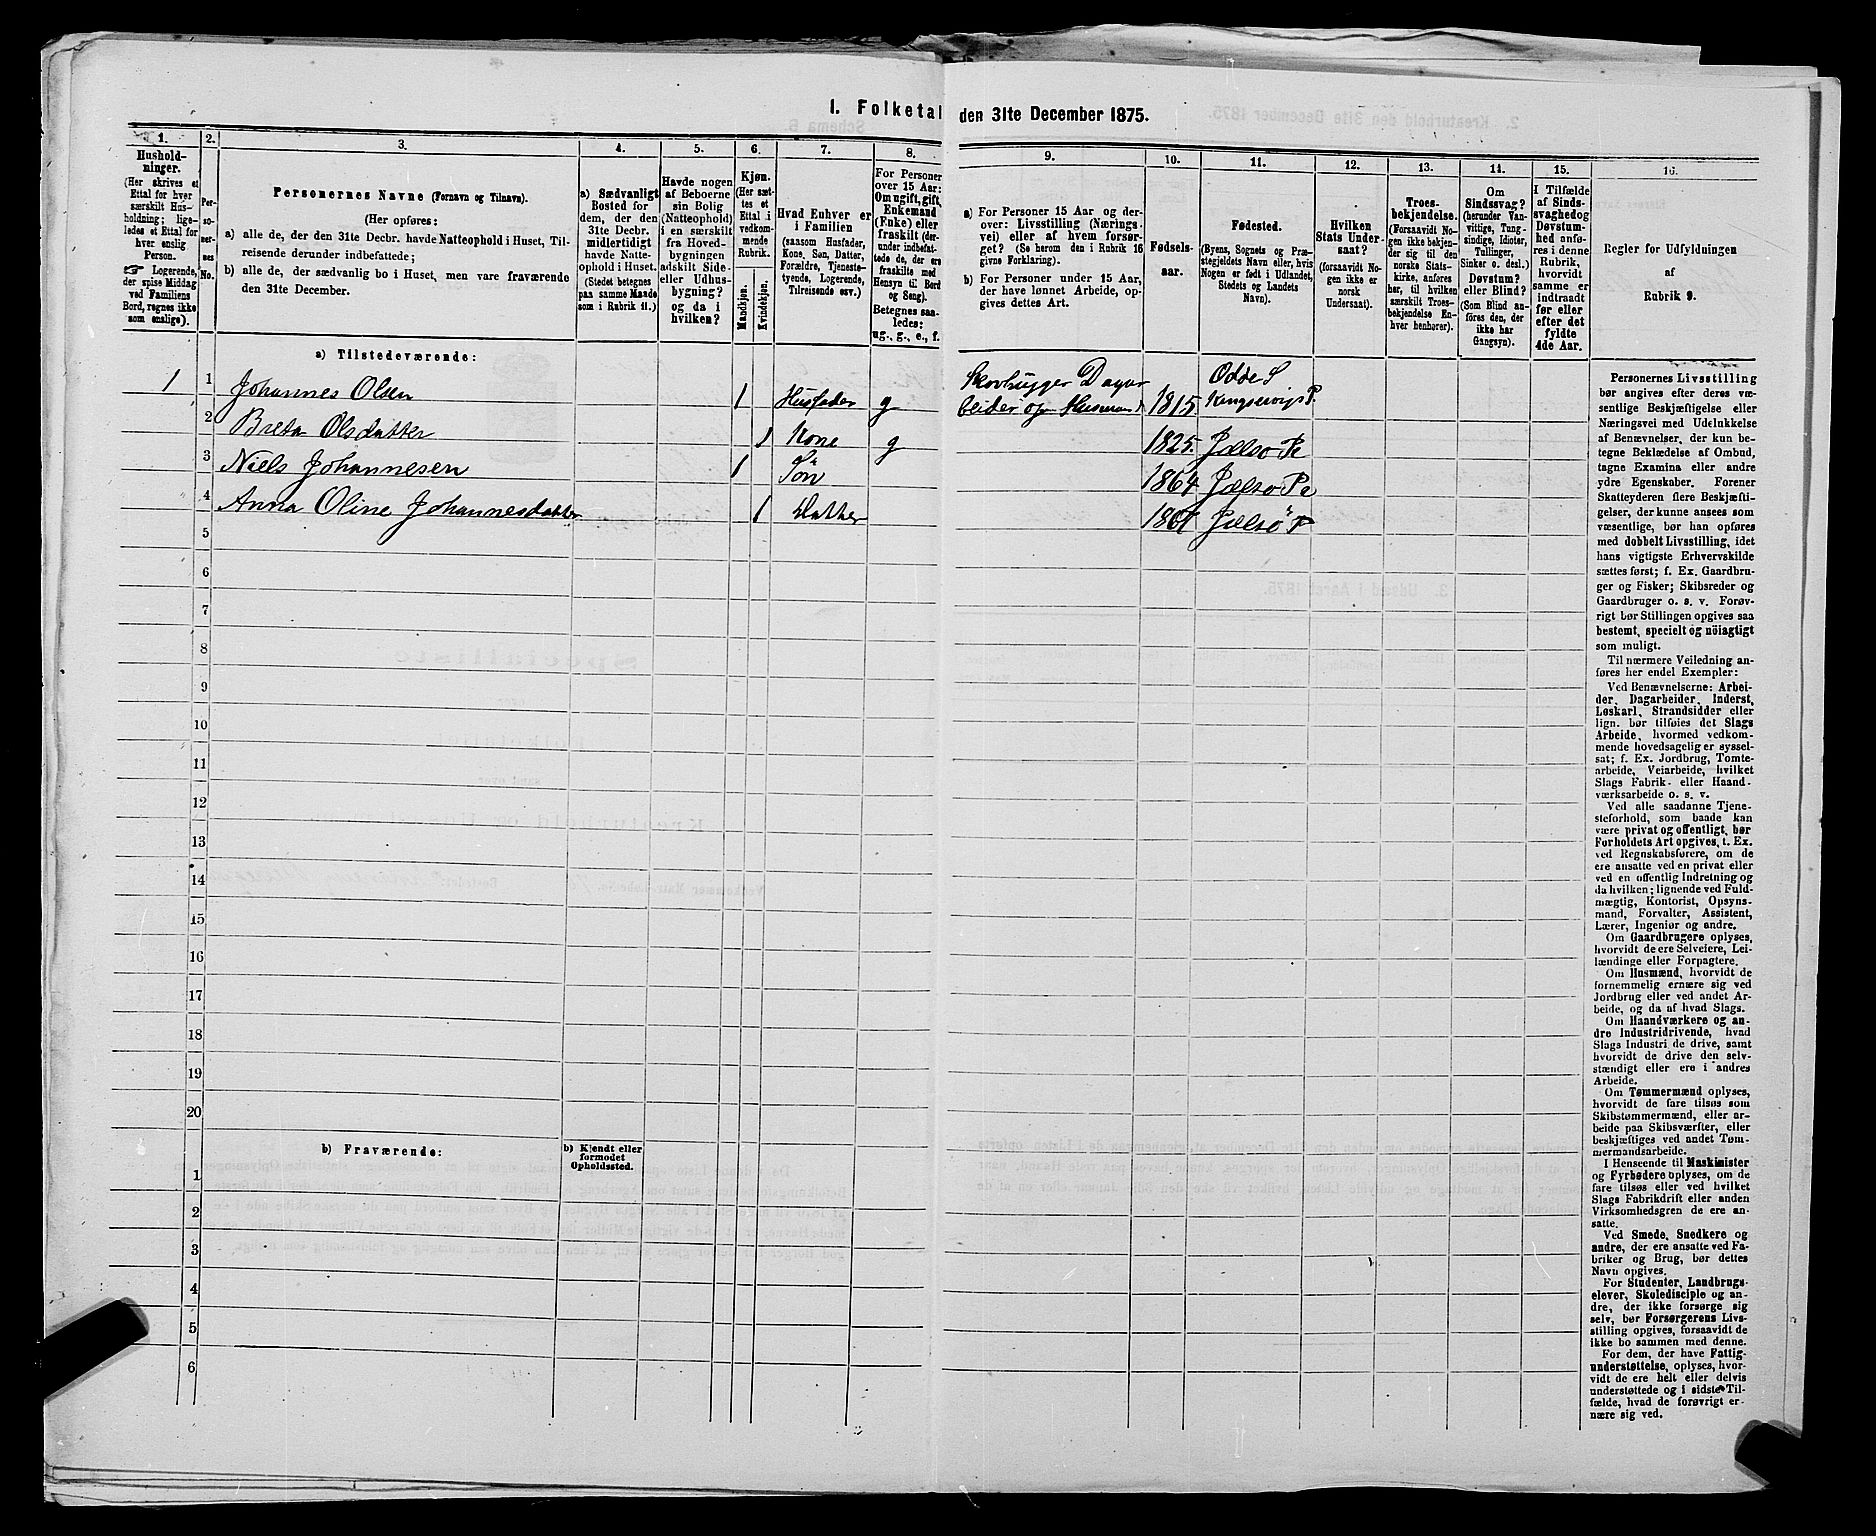 I. Folketal den 31te December 1875.
1.
Hushold-
ninger.
(Her skrives et
Ettal for hver
særskilt Hus-
holdning; lige-
ledes et Ettal for
hver enslig
Person.
☞ Logerende,
der spise Middag
ved Familiens
Bord, regnes ikke
som enslige).
2.
Per-
so-
ner-
nes
No.
3.
Personernes Navne (Fornavn og Tilnavn).
(Her opføres:
a) alle de, der den 31te Decbr. havde Natteophold i Huset, Til-
reisende derunder indbefattede;
b) alle de, der sædvanlig bo i Huset, men vare fraværende
den 31te December.
4.
a) Sædvanligt
Bosted for
dem, der den
31te Decbr.
midlertidigt
havde Natte-
ophold i Huset.
(Stedet betegnes
paa samme Maade
som i Rubrik 11.)
5.
Havde nogen
af Beboerne
sin Bolig
(Natteophold)
i en særskilt
fra Hoved-
bygningen
adskilt Side-
eller Udhus-
bygning?
og da i
hvilken?
6.
Kjøn.
(Her sæt-
tes et
Ettal i
vedkom-
mende
Rubrik.
Mandkjøn.
Kvindekjøn.
7.
Hvad Enhver er
i Familien
(saasom Husfader,
Kone, Søn, Datter,
Forældre, Tjeneste-
tyende, Logerende,
Tilreisende osv.)
8.
For Personer
over 15 Aar:
Om ugift, gift,
Enkemand
(Enke) eller
fraskilt (der-
under indbefat-
tede de, der ere
fraskilte med
Hensyn til Bord
og Seng).
Betegnes saa-
ledes:
ug., g., e., f.
9.
a) For Personer 15 Aar og der-
over: Livsstilling (Nærings-
vei) eller af hvem forsør-
get? (Se herom den i Rubrik 16
givne Forklaring).
b) For Personer under 15 Aar,
der have lønnet Arbeide, op-
gives dettes Art.
10.
Fødsels-
aar.
11.
Fødested.
(Byens, Sognets og Præ-
stegjeldets Navn eller, hvis
Nogen er født i Udlandet,
Stedets og Landets
Navn).
12.
Hvilken
Stats Under-
saat?
(forsaavidt No-
gen ikke er
norsk
Undersaat).
13.
Troes-
bekjendelse.
(Forsaavidt No-
gen ikke bekjen-
der sig til den
norske Stats-
kirke, anføres
her, til hvilken
særskilt Troes-
bekjendelse En-
hver henhører).
14.
Om
Sindssvag?
(herunder Van-
vittige, Tung-
sindige, Idioter,
Tullinger,
Sinker o. desl.)
Døvstum?
eller Blind?
(Som Blind an-
føres den, der
ikke har
Gangsyn).
15.
I Tilfælde
af Sinds-
svaghed og
Døvstum-
hed anfø-
res i denne
Rubrik,
hvorvidt
samme er
indtraadt
før eller
efter det
fyldte
4de Aar.
16.
Regler for Udfyldningen
af
Rubrik 9.
a) Tilstedeværende:
1 1 Johannes Olsen 1 Husfader g Skovhugger Dagar
beider og Husmand 1815 Odde S
Kingservigs P.
2 Breta Olsdatter 1 Kone g 1825. Jælsø P
3 Niels Johannesen 1 Søn 1864 Jælsø P
4 Anna Oline Johannesdatter 1 Datter 1867 Jælsø P
5
6
7
8
9
10
11
12
13
14
15
16
17
18
19
20
b) Fraværende:
b) Kjendt eller
formodet
Opholdssted.
1
2
3
4
5
6
Personernes Livsstilling
bør angives efter deres væ-
sentlige Beskjæftigelse eller
Næringsvei med Udelukkelse
af Benævnelser, der kun be-
tegne Beklædelse af Ombud,
tagne Examina eller andre
ydre Egenskaber. Forener
Skatteyderen flere Beskjæfti-
gelser, der kunne ansees som
væsentlige, bør han opføres
med dobbelt Livsstilling, idet
hans vigtigste Erhvervskilde
sættes først; f. Ex. Gaardbru-
ger og Fisker; Skibsreder og
Gaardbruger o. s. v. Forøv-
rigt bør Stillingen opgives saa
bestemt, specielt og nöiagtigt
som muligt.
Til nærmere Veiledning an-
føres her endel Exempler:
Ved Benævnelserne: Arbei-
der, Dagarbeider, Inderst,
Løskarl, Strandsidder eller
lign. bør tilføies det Slags
Arbeide, hvormed vedkom-
mende hovedsagelig er syssel-
sat; f. Ex. Jordbrug, Tomte-
arbeide, Veiarbeide, hvilket
Slags Fabrik- eller Haand-
værksarbeide o. s. v.
Ved alle saadanne Tjene-
steforhold, som baade kan
være privat og offentligt, bør
Forholdets Art opgives, t. Ex.
ved Regnskabsførere, om de
ere ansatte ved en privat eller
ved en offentlig Indretning og
da hvilken; lignende ved Fuld-
mægtig, Kontorist, Opsyns-
mand, Forvalter, Assistent,
Lærer, Ingeniør og andre.
Om Gaardbrugere oplyses,
hvorvidt de ere Selveiere, Lei-
lændinge eller Forpagtere.
Om Husmænd, hvorvidt de
fornemmelig ernære sig ved
Jordbrug eller ved andet Ar-
beide, og da af hvad Slags.
Om Haandværkere og an-
dre Industridrivende, hvad
Slags Industri de drive, samt
hvorvidt de drive den selv-
stændigt eller ere i andres
Arbeide.
Om Tømmermænd oplyses,
hvorvidt de fare tilsøs som
Skibstømmermænd, eller ar-
beide paa Skibsværfter, eller
beskjæftiges ved andet Tøm-
mermandsarbeide.
I Henseende til Maskinister
og Fyrbødere oplyses, om de
fare tilsøs eller ved hvilket
Slags Fabrikdrift eller anden
Virksomhedsgren de ere an-
satte.
Ved Smede, Snedkere og
andre, der ere ansatte ved Fa-
briker og Brug, bør dettes
Navn opgives.
For Studenter, Landbrugs-
elever, Skoledisciple og an-
dre, der ikke forsørge sig
selv, bør Forsørgerens Livs-
stilling opgives, forsaavidt de
ikke bo sammen med denne.
For dem, der have Fattig-
understøttelse, oplyses, hvor-
vidt de ere helt eller delvis
understøttede og i sidste Til-
fælde, hvad de forøvrigt er-
nære sig ved.